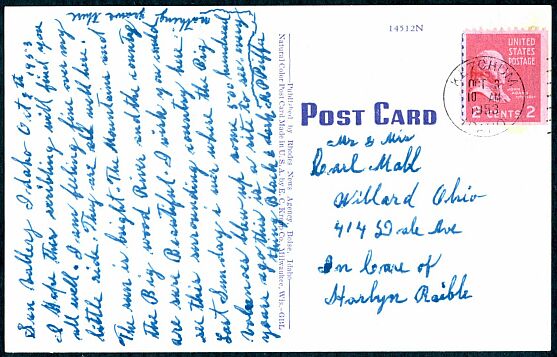 Sun Valley, Idaho Oct 8th 1953
I Hope this writting will find you
all well. I am feeling fine over my
little ride. They are all well here.
The sun is bright. The Mountains and
the Big Wood River and the country
are sure Beautiful. I wish you could
see this surrounding country here.
Last Sunday I was where the Big
volcanoes blew up some 1500 hundred
years ago this is a site to see every
thing Black & dark
nothing grows there
Published by Rhodes News Agency, Boise, Idaho
Natural Color Post Card Made in U.S.A. by E. C. Kropp Co., Milwaukee, Wis.
14512N
POST CARD
UNITED
STATES
POSTAGE
2
CENTS
KETCHUM
OCT 8
10 AM
1953
Mr & Mrs
Carl Mahl
Willard Ohio
414 Dale Ave
In Care of
Harlyn Raible